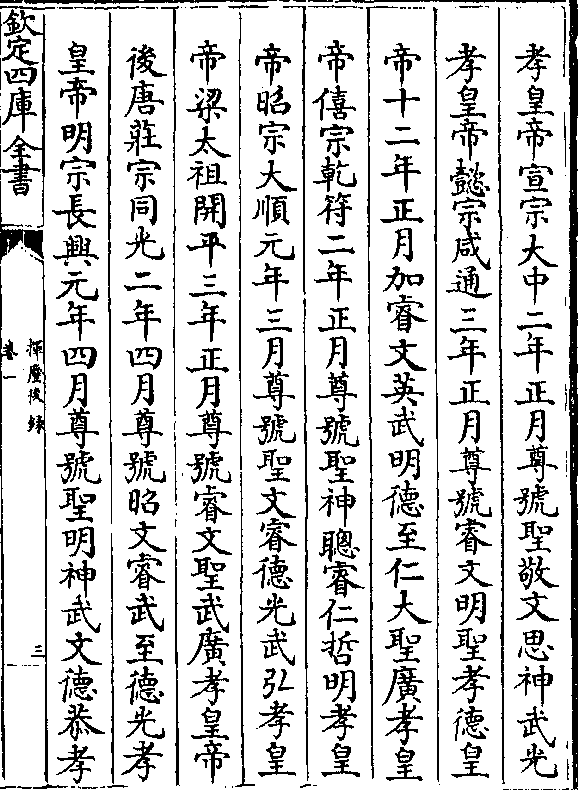 孝皇帝宣宗大中二年正月尊號聖敬文思神武光
孝皇帝懿宗咸通三年正月尊號睿文明聖孝德皇
帝十二年正月加睿文英武明德至仁大聖廣孝皇
帝僖宗乾符二年正月尊號聖神聰睿仁哲明孝皇
帝昭宗大順元年三月尊號聖文睿德光武弘孝皇
帝梁太祖開平三年正月尊號睿文聖武廣孝皇帝
後唐莊宗同光二年四月尊號昭文睿武至德光孝
皇帝明宗長興元年四月尊號聖明神武文德恭孝
欽定四庫全書
揮麈後錄
卷一
三